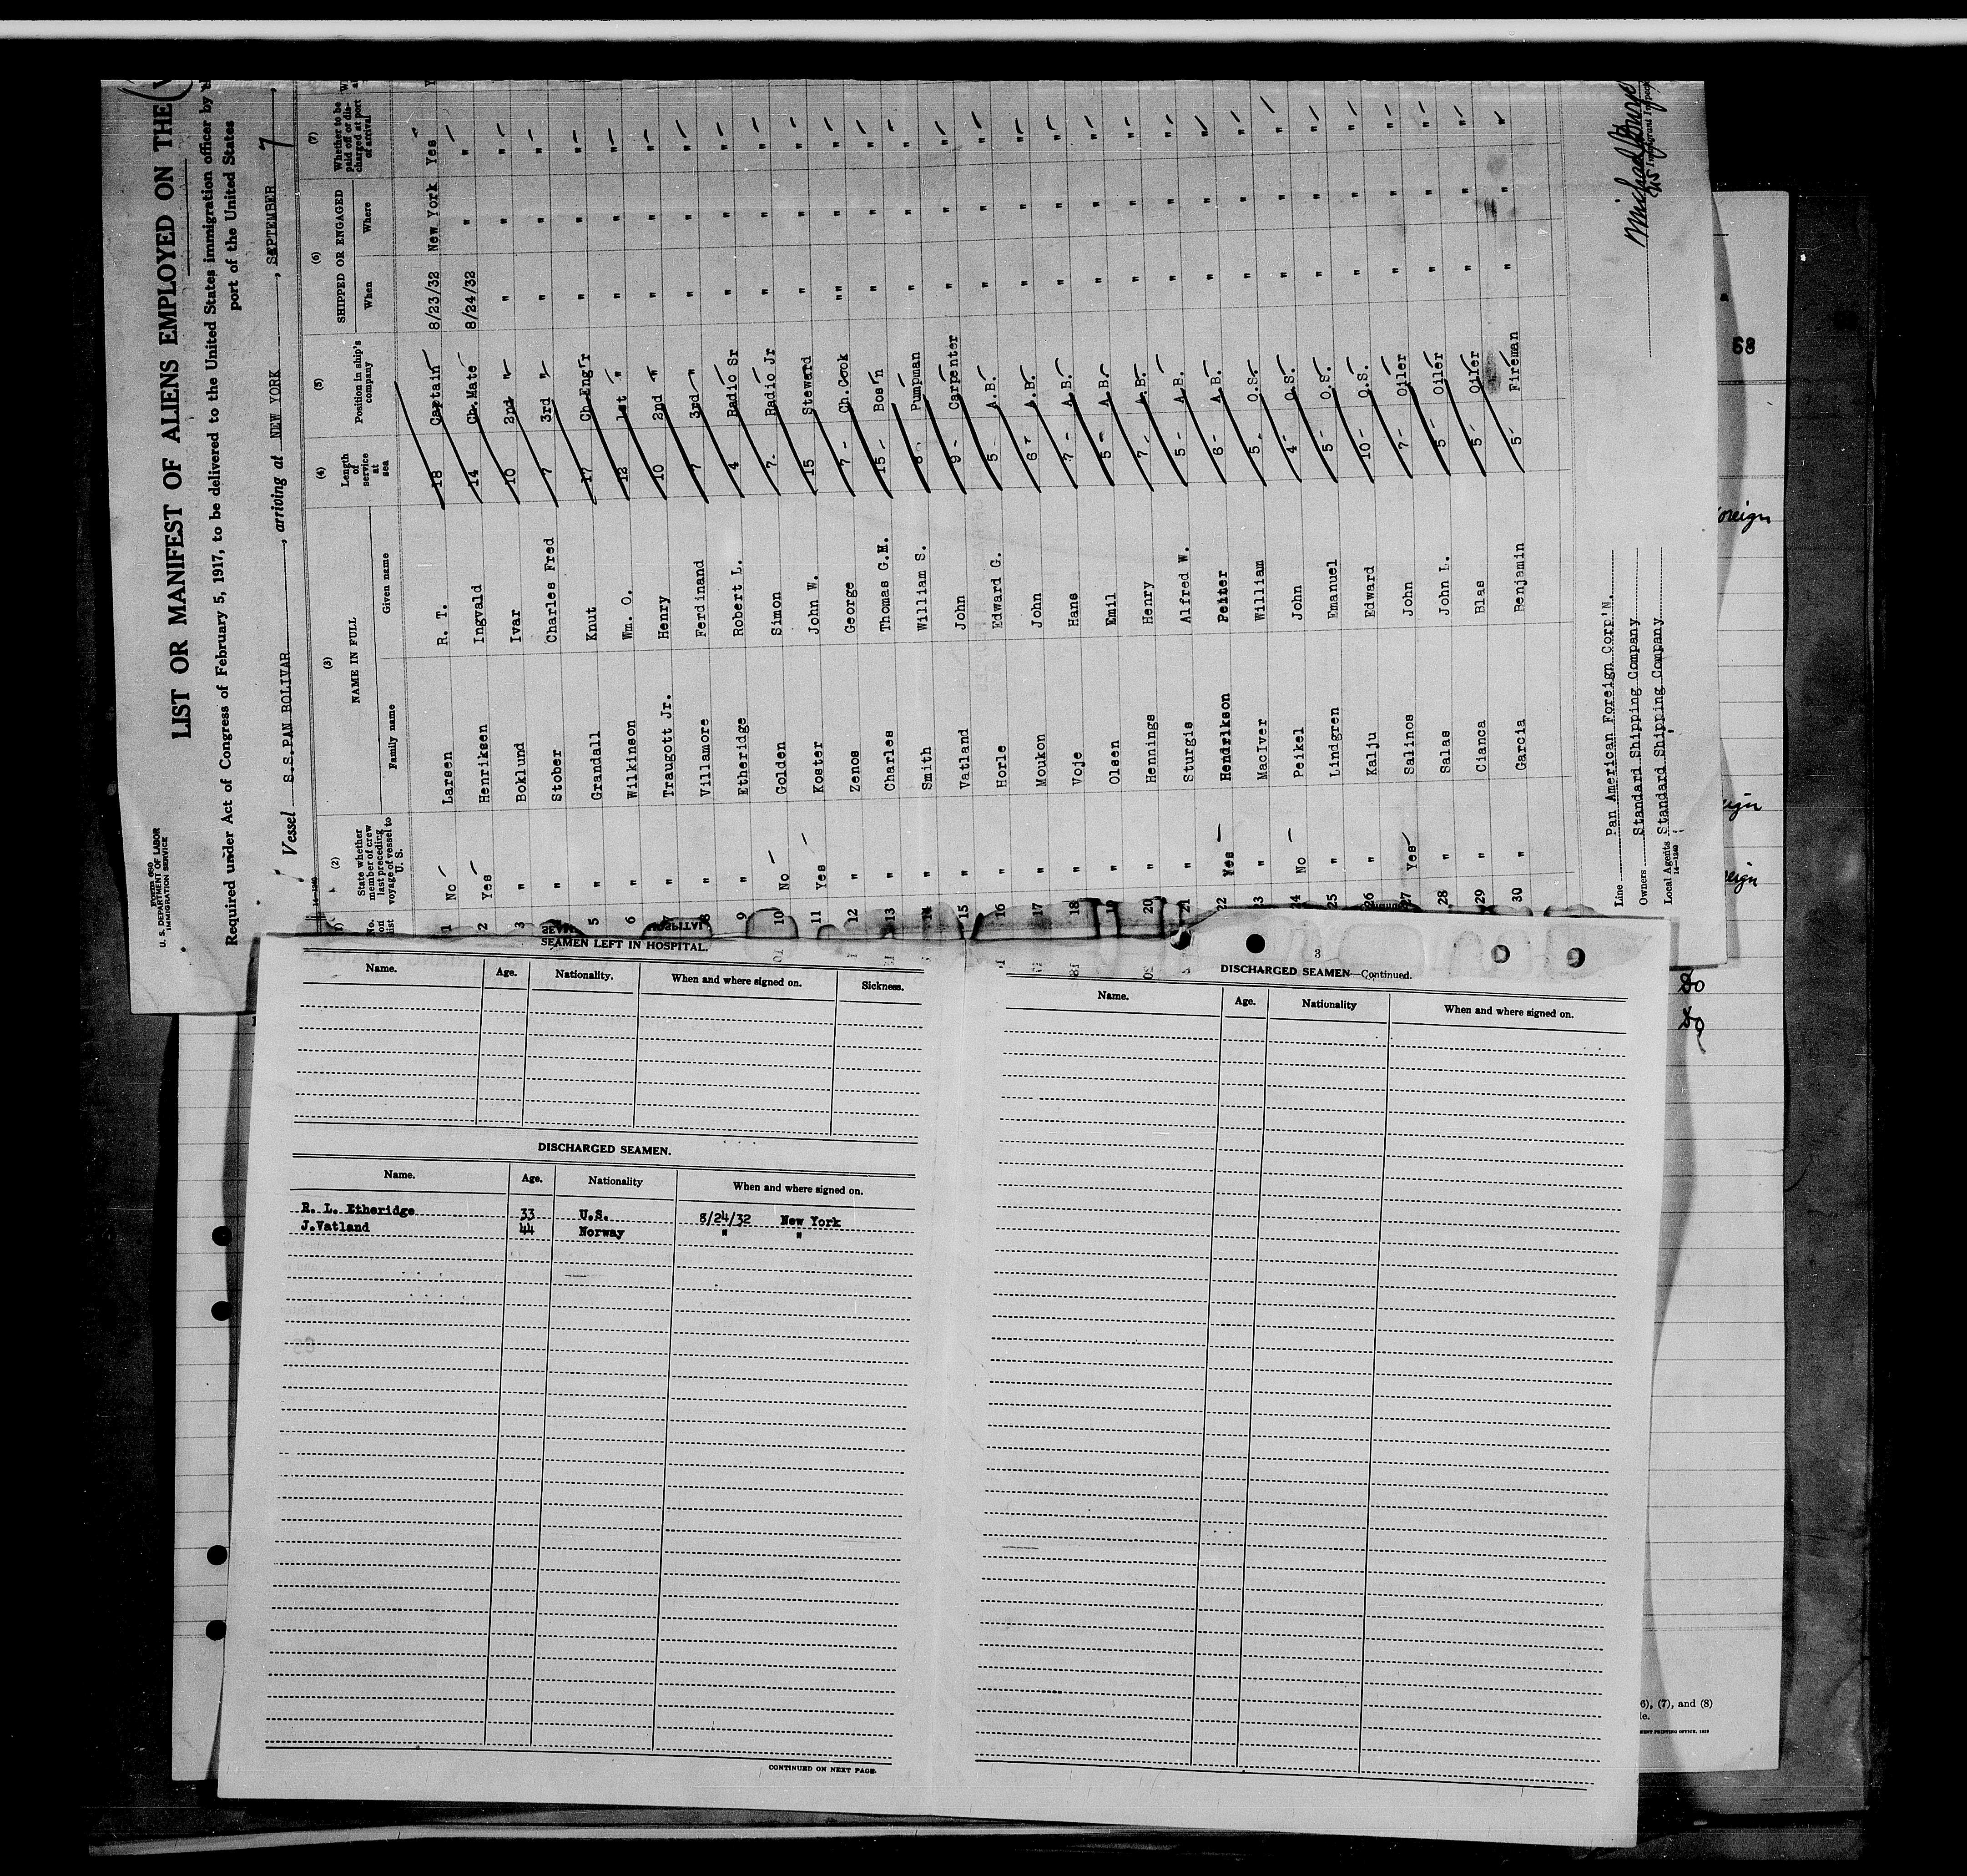 Form 680
U. S. DEPARTMENT OF LABOR
IMMIGRATION SERVICE
LIST OR MANIFEST OF ALIENS EMPLOYED ON THE
Required under Act of Congress of February 5, 1917, to be delivered to the United States immigration officer by
port of the United States
Vessel S.S.PAN BOLIVAR, arriving at NEW YORK, SEPTEMBER 7,
(2) (3) (4) (5) (6) (7)
No. on list State whether member of crew last preceding voyage of vessel to U. S. NAME IN FULL Family name Given name Length of service at sea Position in ship's company SHIPPED OR ENGAGED When Where Whether to be paid off or discharged at port of arrival
1 No Larsen R. T. 18 Captain 8/23/32 New York Yes
2 Yes Henriksen Ingvald 14 Ch.Mate 8/24/32 " "
3 " Boklund Ivar 10 2nd " " " "
" Stober Charles Fred 7 3rd " " " "
5 " Grandall Knut 17 Ch.Eng'r " " "
6 " Wilkinson Wm. O. 12 1st " " " "
7 " Traugott Jr. Henry 10 2nd " " " "
8 " Villamore Ferdinand 7 3rd " " " "
9 " Etheridge Robert L. 4 Radio Sr " " "
10 No Golden Simon 7 Radio Jr " " "
11 Yes Koster John W. 15 Steward " " "
12 " Zenos George 7 Ch.Cook "" " "
13 " Charles Thomas G.M. 15 Bos'n " " "
14 " Smith William S. 8 Pumpman " " "
15 " Vatland John 9 Carpenter " " "
16 " Horle Edward G. 5 A.B. " " "
17 " Moukon John 6 A.B. " " "
18 " Voje Hans 7 A.B. " " "
19 " Olsen Emil 5 A.B. " " "
20 " Hennings Henry 7 A.B. " " "
21 " Sturgis Alfred W. 5 A.B. " " "
22 Yes Hendrikson Peiter 6 A.B. " " "
23 " MacIver William 5 O.S. " " "
24 No Peikel John 4 O.S. " " "
25 " Lindgren Emanuel 5 O.S. " " "
26 " Kalju Edward 10 O.S. " " "
27 Yes Salinos John 7 Oiler " " "
28 " Salas John L. 5 Oiler " " "
29 " Cianca Blas 5 Oiler " " "
30 " Garcia Benjamin 5 Fireman " " "
Line Pan American Foreign Corp'N.
Owners Standard Shipping Company
Local Agents Standard Shipping Company
14—1240
Immigrant Inspector
68
oreign
eign
reign
Do
Do
6), (7), and (8)
le.
SEAMEN LEFT IN HOSPITAL.
Name. Age. Nationality. When and where signed on. Sickness.
DISCHARGED SEAMEN.
Name. Age. Nationality When and where signed on.
R. L. Etheridge 33 U.S. 8/24/32 New York
J.Vatland 44 Norway " "
CONTINUED ON NEXT PAGE.
3
DISCHARGED SEAMEN—Continued.
Name. Age. Nationality When and where signed on.